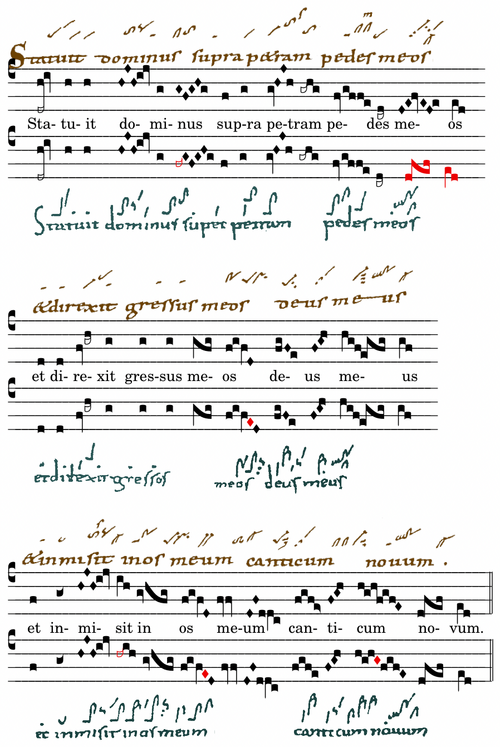 Statuit dominus supra petram pedes meos
Sta- tu- it do- mi- nus sup-ra pe-tram pe- des me- os
Statuit dominus super petram pedes meos
& direxit gressus meos deus me us
et di- re- xit gres-sus me- os de- us me- us
et direxit gressos meos deus meus
& inmisit inos meum canticum novum .
et in- mi- sit in os me-um can- ti- cum no- vum.
et inmisit inos meum canticum novum